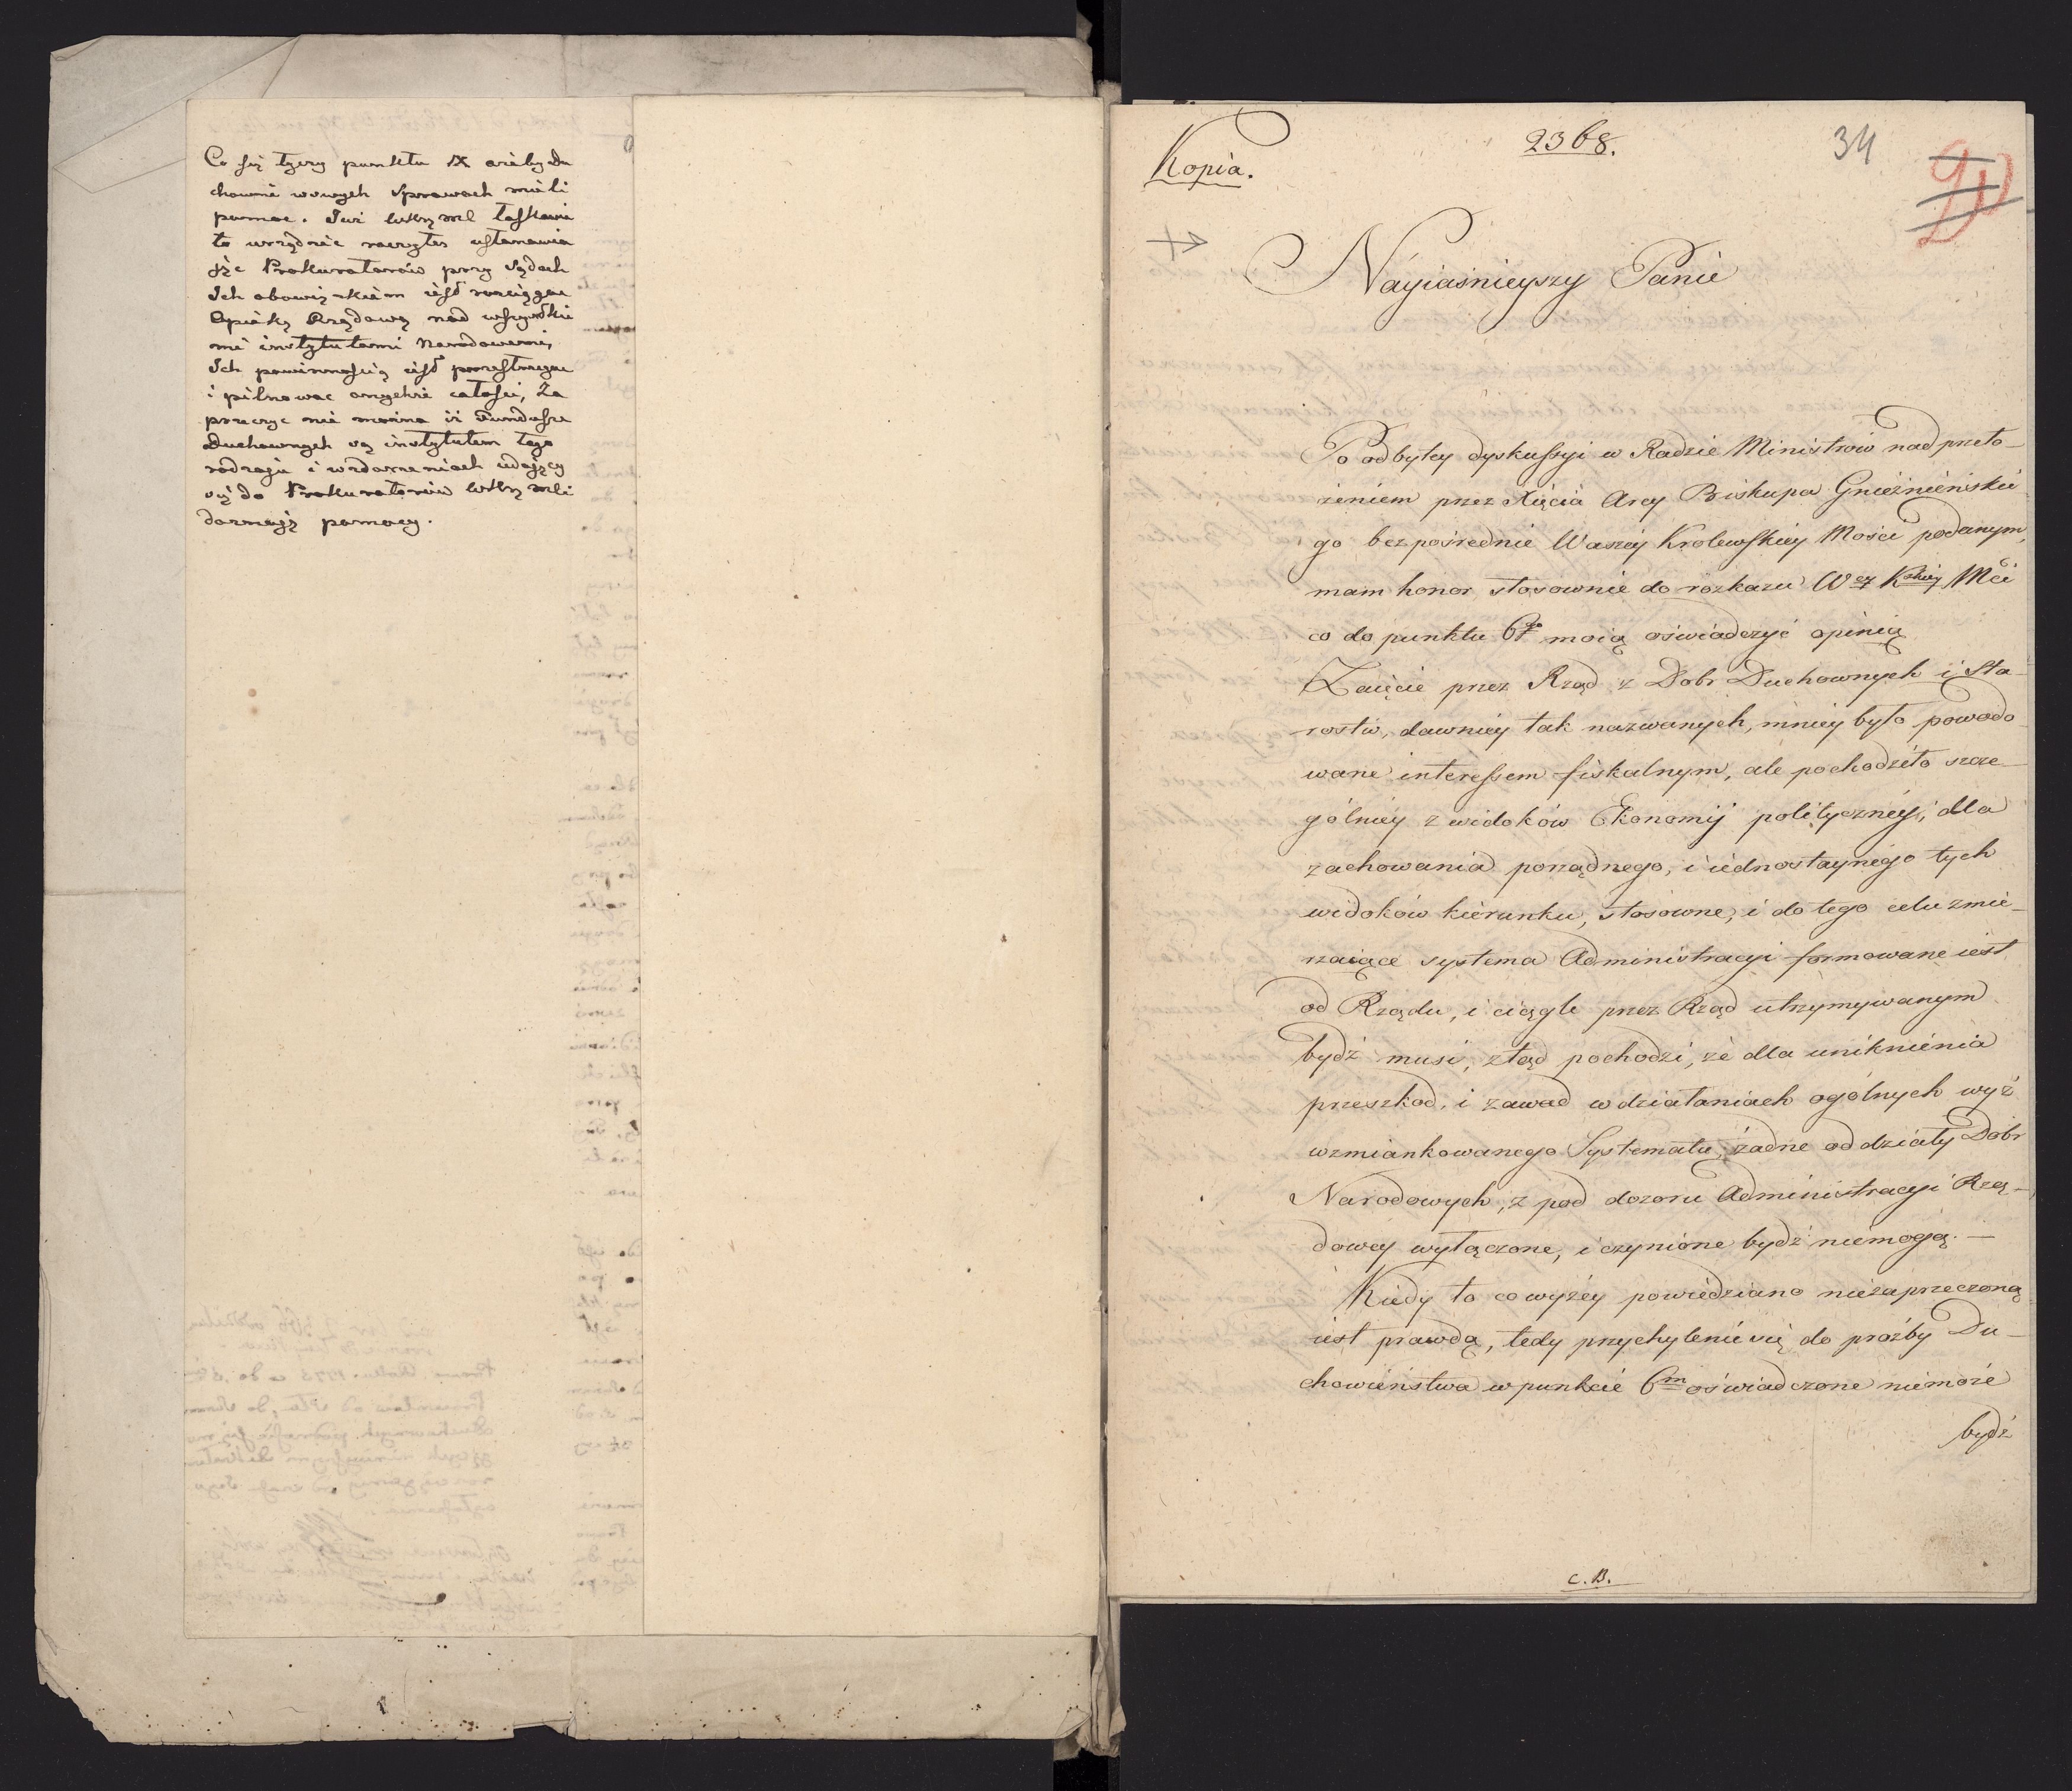 Co się tyczy punktu IX ażeby Du
chowni w swych Sprawach mieli
pomoc. Już WKrMc łaskawie
to urządzić raczyłes ustanawia
jąc Prokuratorów przy Sądach
Ich obowiązkiem iest rosciągać
Opiekę Rządową nad wszystkie
mi instytutami Narodowemi,
Ich powinnoscią iest przestrzegać
i pilnowac onychże całosci, Za
przeczyc nie można iż Fundusze
Duchownych są instytutem tego
rodzaju i w zdarzeniach udający
się do Prokuratorów WKrMci
doznają pomocy.
Kopia.
2368.
34
Nayiaśnieyszy Panie
Po odbytey dyskussyi w Radzie Ministrów nad przeło-
żeniem przez Xięcia Arcy Biskupa Gnieźnieńskie
go bezpośrednie Waszey Krolewskiey Mości podanym,
mam honor stosownie do rozkazu Wey Kskiey Mci
co do punktu 6go moią oświadczyć opinią
Zaięcie przez Rząd z Dobr Duchownych i Sta-
rostw, dawniey tak nazwanych, mniey było powodo-
wane interessem fiskalnym, ale pochodziło szcze-
gólniey z widoków Ekonomij polityczney, dla
zachowania porządnego, i iednostaynego tych
widoków kierunku, stosowne, i do tego celu zmie-
rzaiące systema Administracyi formowane iest
od Rządu, i ciągle przez Rząd utrzymywanym
bydź musi, ztąd pochodzi, że dla uniknienia
przeszkod, i zawad w działaniach ogólnych wyż
wzmiankowanego Systematu, żadne oddziały Dobr
Narodowych, z pod dozoru Administracyi Rzą-
dowey wyłączone, i czynione bydź niemogą. -
Kiedy to co wyżey powiedziano niezaprzeczoną
iest prawdą, tedy przychylenie się do proźby Du-
chowieństwa w punkcie 6m oświadczone niemoże
bydź
C.B.